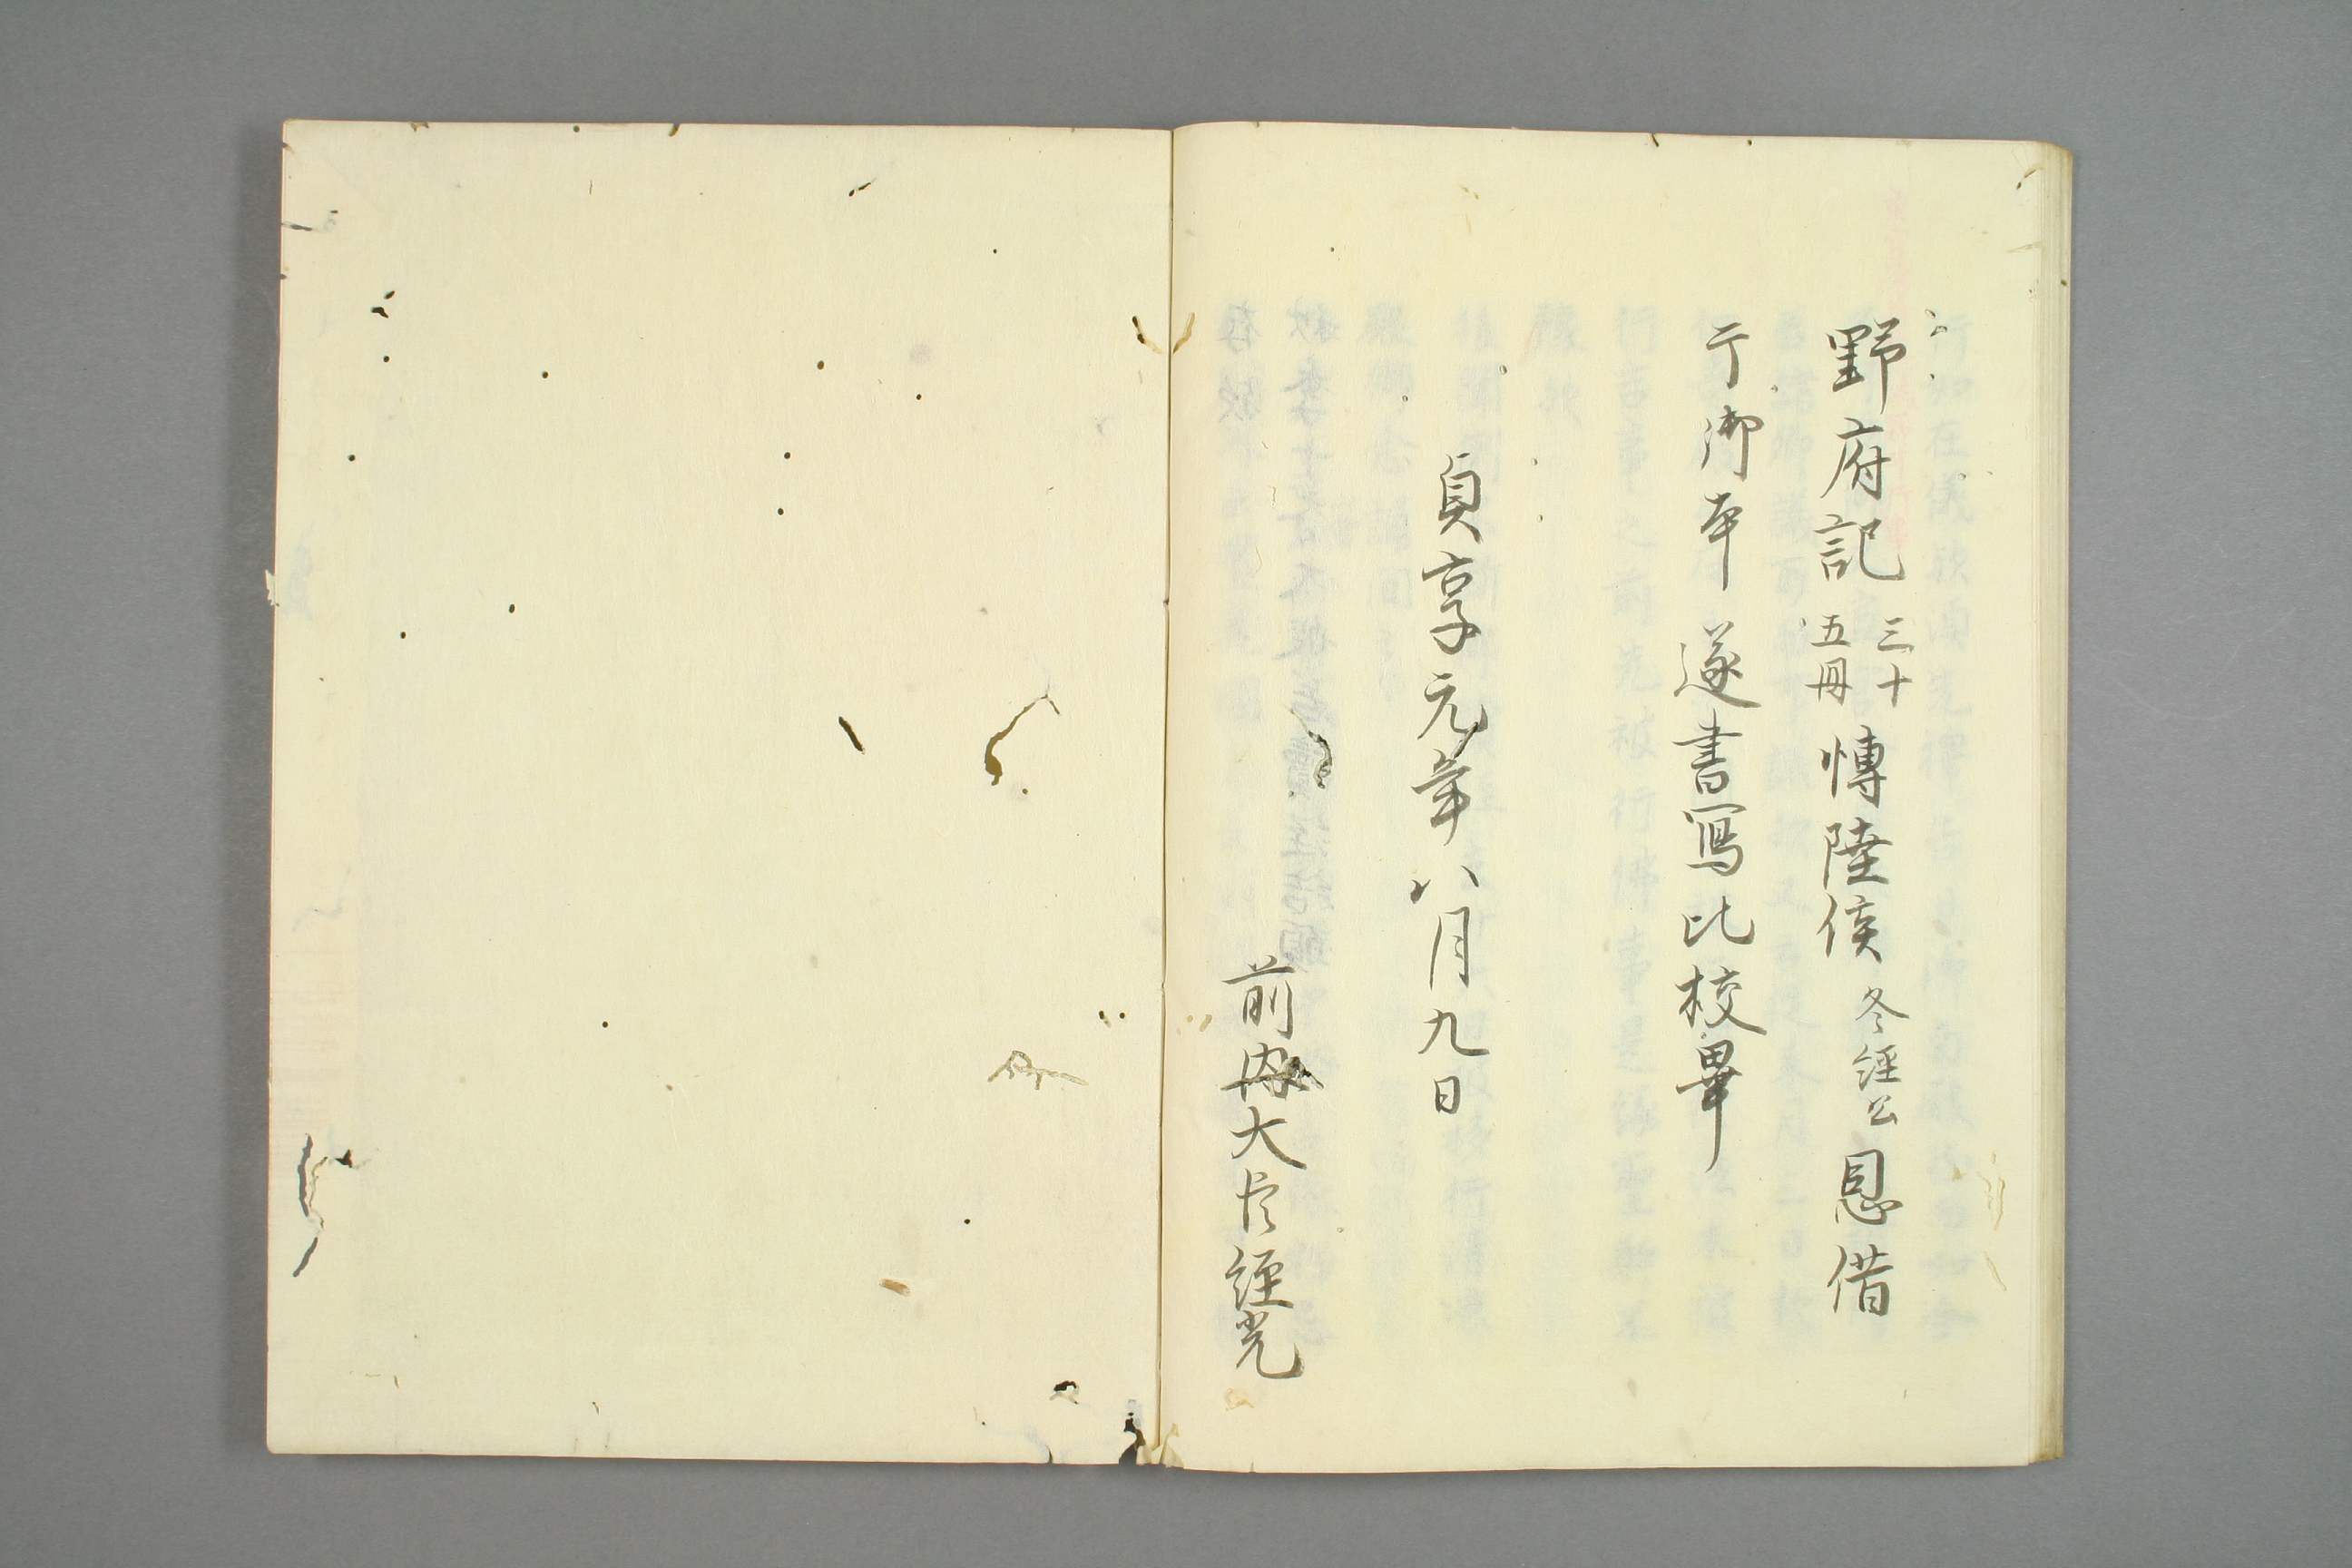 野府記三十五冊博陸侯冬經公恩借
于御本遂書寫比校畢
貞享元年八月九日
前内大臣經光